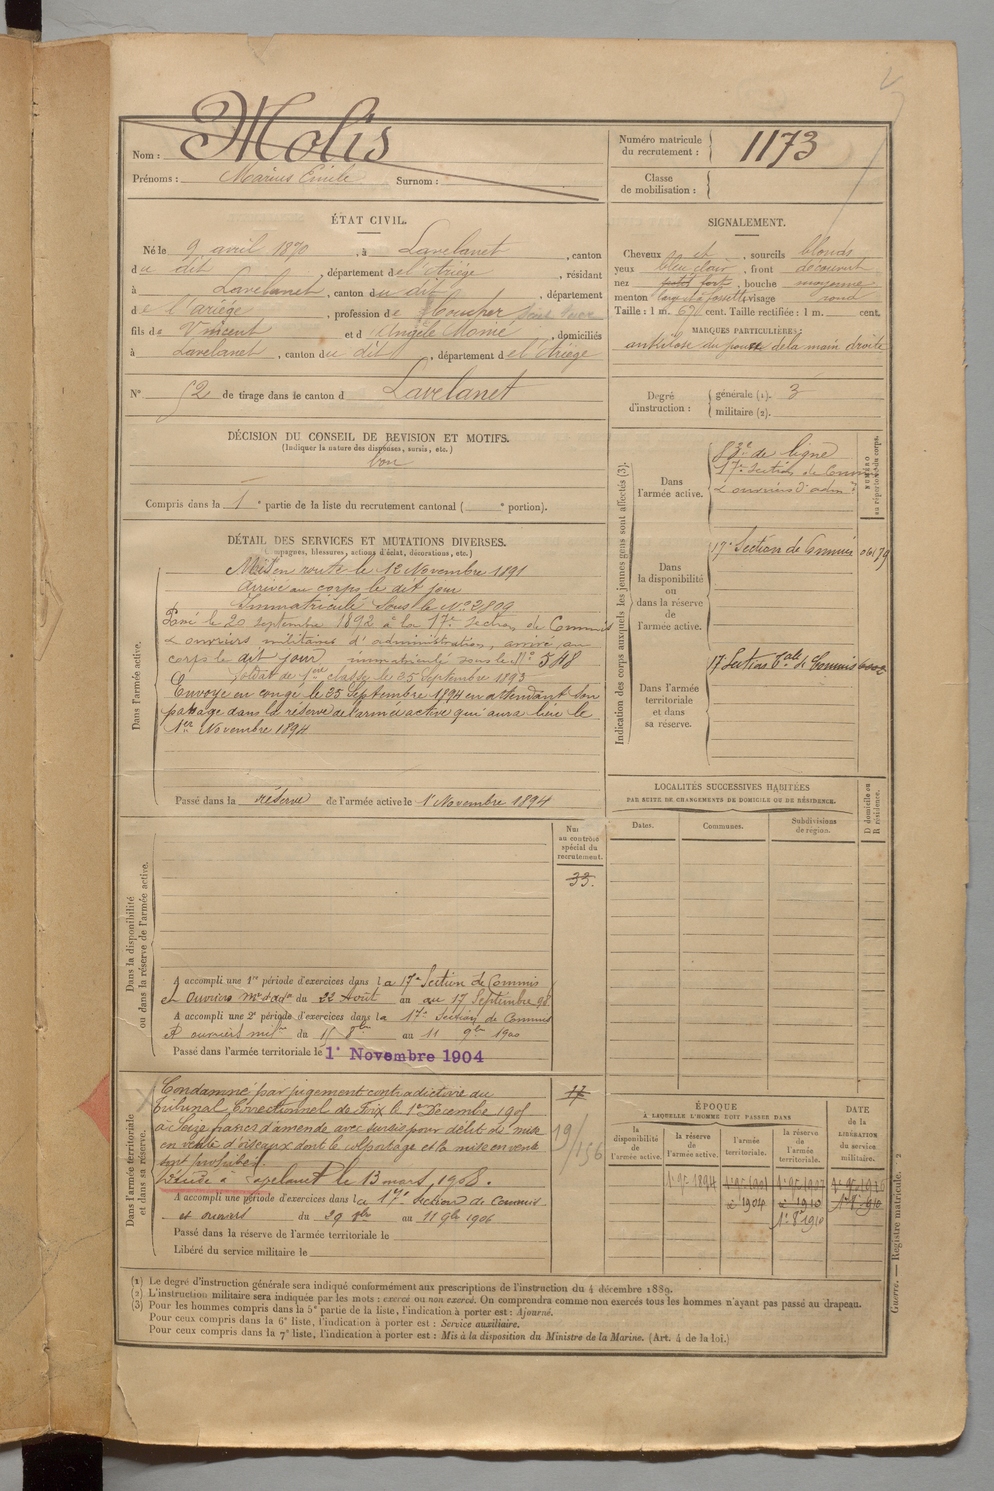 Nom : Molis
Prénoms : Marius Emile Surnom :
Numéro matricule du recrutement : 1173
Classe de mobilisation :
ÉTAT CIVIL.
Né le 9 avril 1870, à Lavelanet, canton
du dit, département de l'Ariége, résidant
à Lavelanet, canton du dit, département
de l'ariége, profession de
fils de Vincent et d'Angèle Monié, domiciliés
à Lavelanet, canton du dit, département de l'Ariège
N° 52 de tirage dans le canton d Lavelanet
SIGNALEMENT.
Cheveux et, sourcils blonds
yeux bleu clair, front découvert
nez petit fort, bouche moyenne
menton large et à fossette, visage rond
Taille : 1 m. 67 cent. Taille rectifiée : 1 m. cent.
MARQUES PARTICULIÈRES :
ankilose du pouce de la main droite
Degré d'instruction : générale (1). 3
militaire (2).
DÉCISION DU CONSEIL DE REVISION ET MOTIFS.
(Indiquer la nature des dispenses, sursis, etc.)
bon
Compris dans la 1e partie de la liste du recrutement cantonal ( e portion).
DÉTAIL DES SERVICES ET MUTATIONS DIVERSES.
(Campagnes, blessures, actions d'éclat, décorations, etc.)
Dans l'armée active.
Mis en route le 12 Novembre 1891
Arrivé au corps le dit jour
Immatriculé sous le N° 2809
Passé le 20 septembre 1892 à la 17e Section de Commis
& ouvriers militaires d'administration, arrivé au
corps le dit jour immatriculé sous le N° 548
Soldat de 1ère classe le 25 Septembre 1893
Envoyé en congé le 25 Septembre 1894 en attendant son
passage dans la réserve de l'armée active qui aura lieu le
1er Novembre 1894
Passé dans la réserve de l'armée active le 1r Novembre 1894
Indication des corps auxquels les jeunes gens sont affectés (3).
NUMÉRO au répertoire du corps.
Dans l'armée active.
83e de ligne
17e Section de Commis
& ouvriers d'adm.
Dans la disponibilité ou dans la réserve de l'armée active.
17e Section de Commis 06179
Dans l'armée territoriale et dans sa réserve.
17 Section Tale de Commis
LOCALITÉS SUCCESSIVES HABITÉES
PAR SUITE DE CHANGEMENTS DE DOMICILE OU DE RÉSIDENCE.
Dates. Communes. Subdivisions de région. D domicile ou R résidence.
Dans la disponibilité ou dans la réserve de l'armée active.
Nos au contrôle spécial du recrutement.
33.
A accompli une 1re période d'exercices dans la 17e Section de Commis
et Ouvriers du 22 Août au 17 Septembre 98
A accompli une 2e période d'exercices dans la 17e Section de Commis
et ouvriers milre du 15 8bre au 11 9bre 1900
Passé dans l'armée territoriale le 1er Novembre 1904
Dans l'armée territoriale et dans sa réserve.
Condamné par jugement contradictoire du
Tribunal Correctionnel de Foix le 1er Décembre 1905
à Seize francs d'amende avec sursis pour délit de mise
en vente d'oiseaux dont le colportage et la mise en vente
sont prohibés.
Décédé à Lavelanet le 13 mars 1908.
17
19/156
A accompli une période d'exercices dans la 17e Section de Commis
et ouvriers du 29 8bre au 11 9bre 1906
Passé dans la réserve de l'armée territoriale le
Libéré du service militaire le
ÉPOQUE
À LAQUELLE L'HOMME DOIT PASSER DANS
la disponibilité de l'armée active. la réserve de l'armée active. l'armée territoriale. la réserve de l'armée territoriale. DATE de la LIBÉRATION du service militaire.
1er 9bre 1894
1904 1910
1er 8re 1910
Guerre. — Registre matricule. 2
(1) Le degré d'instruction générale sera indiqué conformément aux prescriptions de l'instruction du 4 décembre 1889.
(2) L'instruction militaire sera indiquée par les mots : exercé ou non exercé. On comprendra comme non exercés tous les hommes n'ayant pas passé au drapeau.
(3) Pour les hommes compris dans la 5e partie de la liste, l'indication à porter est : Ajourné.
Pour ceux compris dans la 6e liste, l'indication à porter est : Service auxiliaire.
Pour ceux compris dans la 7e liste, l'indication à porter est : Mis à la disposition du Ministre de la Marine. (Art. 4 de la loi.)